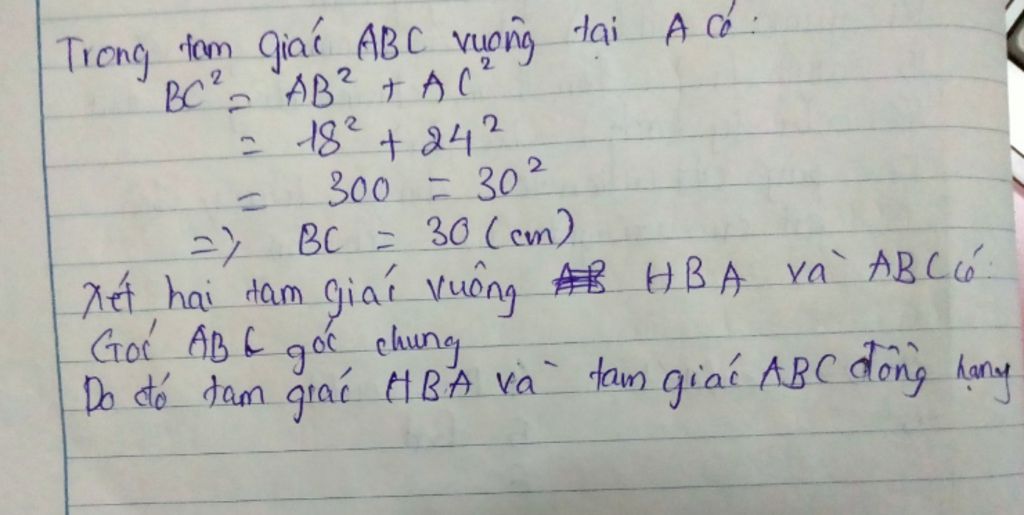 Trong tam giác ABC vuông tại A Có:
BC² = AB² + AC²
= 18² + 24²
= 300 = 30²
=> BC = 30 (cm)
Xét hai tam giác vuông HBA và ABC có:
Góc ABC góc chung
Do đó tam giác HBA và tam giác ABC đồng hạng